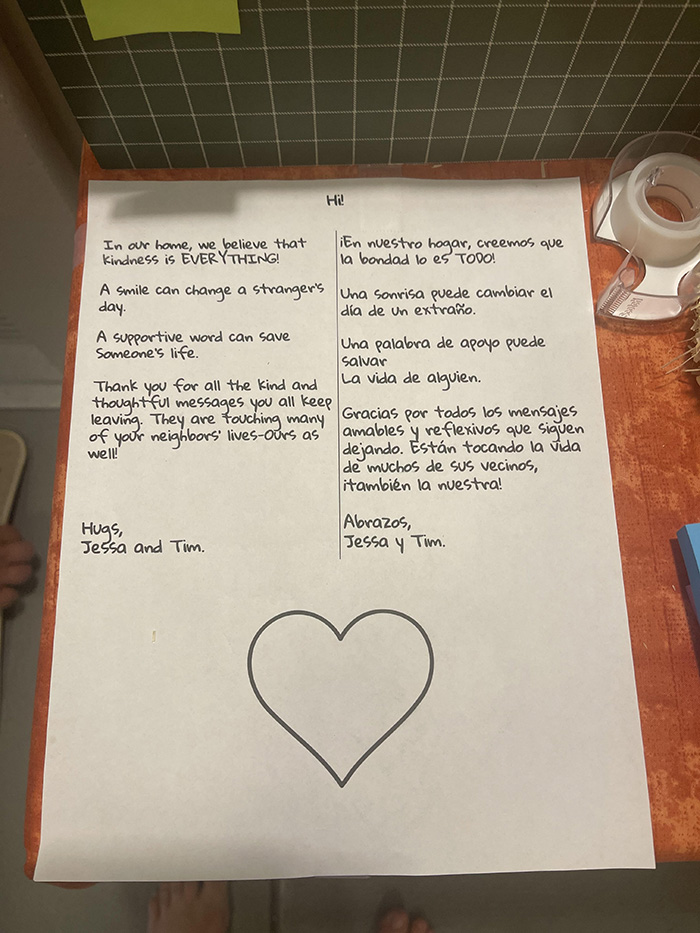 Hi!
In our home, we believe that
kindness is EVERYTHING!
A smile can change a stranger's
day.
A supportive word can save
someone's life.
Thank you for all the kind and
thoughtful messages you all keep
leaving. They are touching many
of your neighbors' lives-ours as
well!
Hugs,
Jessa and Tim.
¡En nuestro hogar, creemos que
la bondad lo es TODO!
Una sonrisa puede cambiar el
día de un extraño.
Una palabra de apoyo puede
salvar
La vida de alguien.
Gracias por todos los mensajes
amables y reflexivos que siguen
dejando. Están tocando la vida
de muchos de sus vecinos,
¡también la nuestra!
Abrazos,
Jessa y Tim.